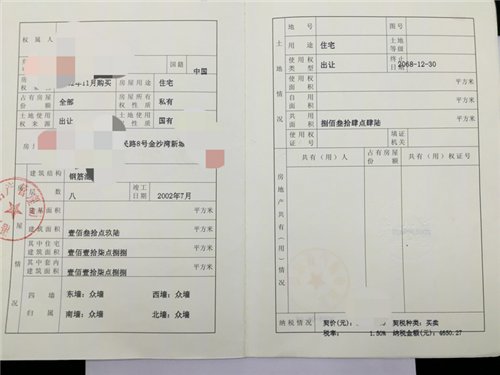 权属人
国籍
中国
权来源
年11月购买
房屋用途
住宅
占有房屋份额
全部
房屋所有权性质
私有
土地使用权来源
出让
土地使用权性质
国有
民路8号金沙湾新城
建筑结构
钢筋混
层数
八
竣工日期
2002年7月
房屋情况
建屋面积
平方米
建筑面积
壹佰叁拾点玖陆
平方米
其中住宅建筑面积
壹佰壹拾柒点捌捌
平方米
其中套内建筑面积
壹佰壹拾柒点捌捌
平方米
四墙归属
东墙：众墙
西墙：众墙
南墙：众墙
北墙：众墙
土地情况
地号
图号
用途
住宅
土地等级
使用权类型
出让
终止日期
2068-12-30
使用权面积
平方米
自用面积
平方米
共用面积
捌佰叁拾肆点肆陆
平方米
使用权证号
填证机关
房地产共有（用）情况
共有（用）人
占有房屋份额
共有权证号
纳税情况
契价(元)：
契税种类：买卖
税率：
1.50%
纳税金额(元)：4650.27